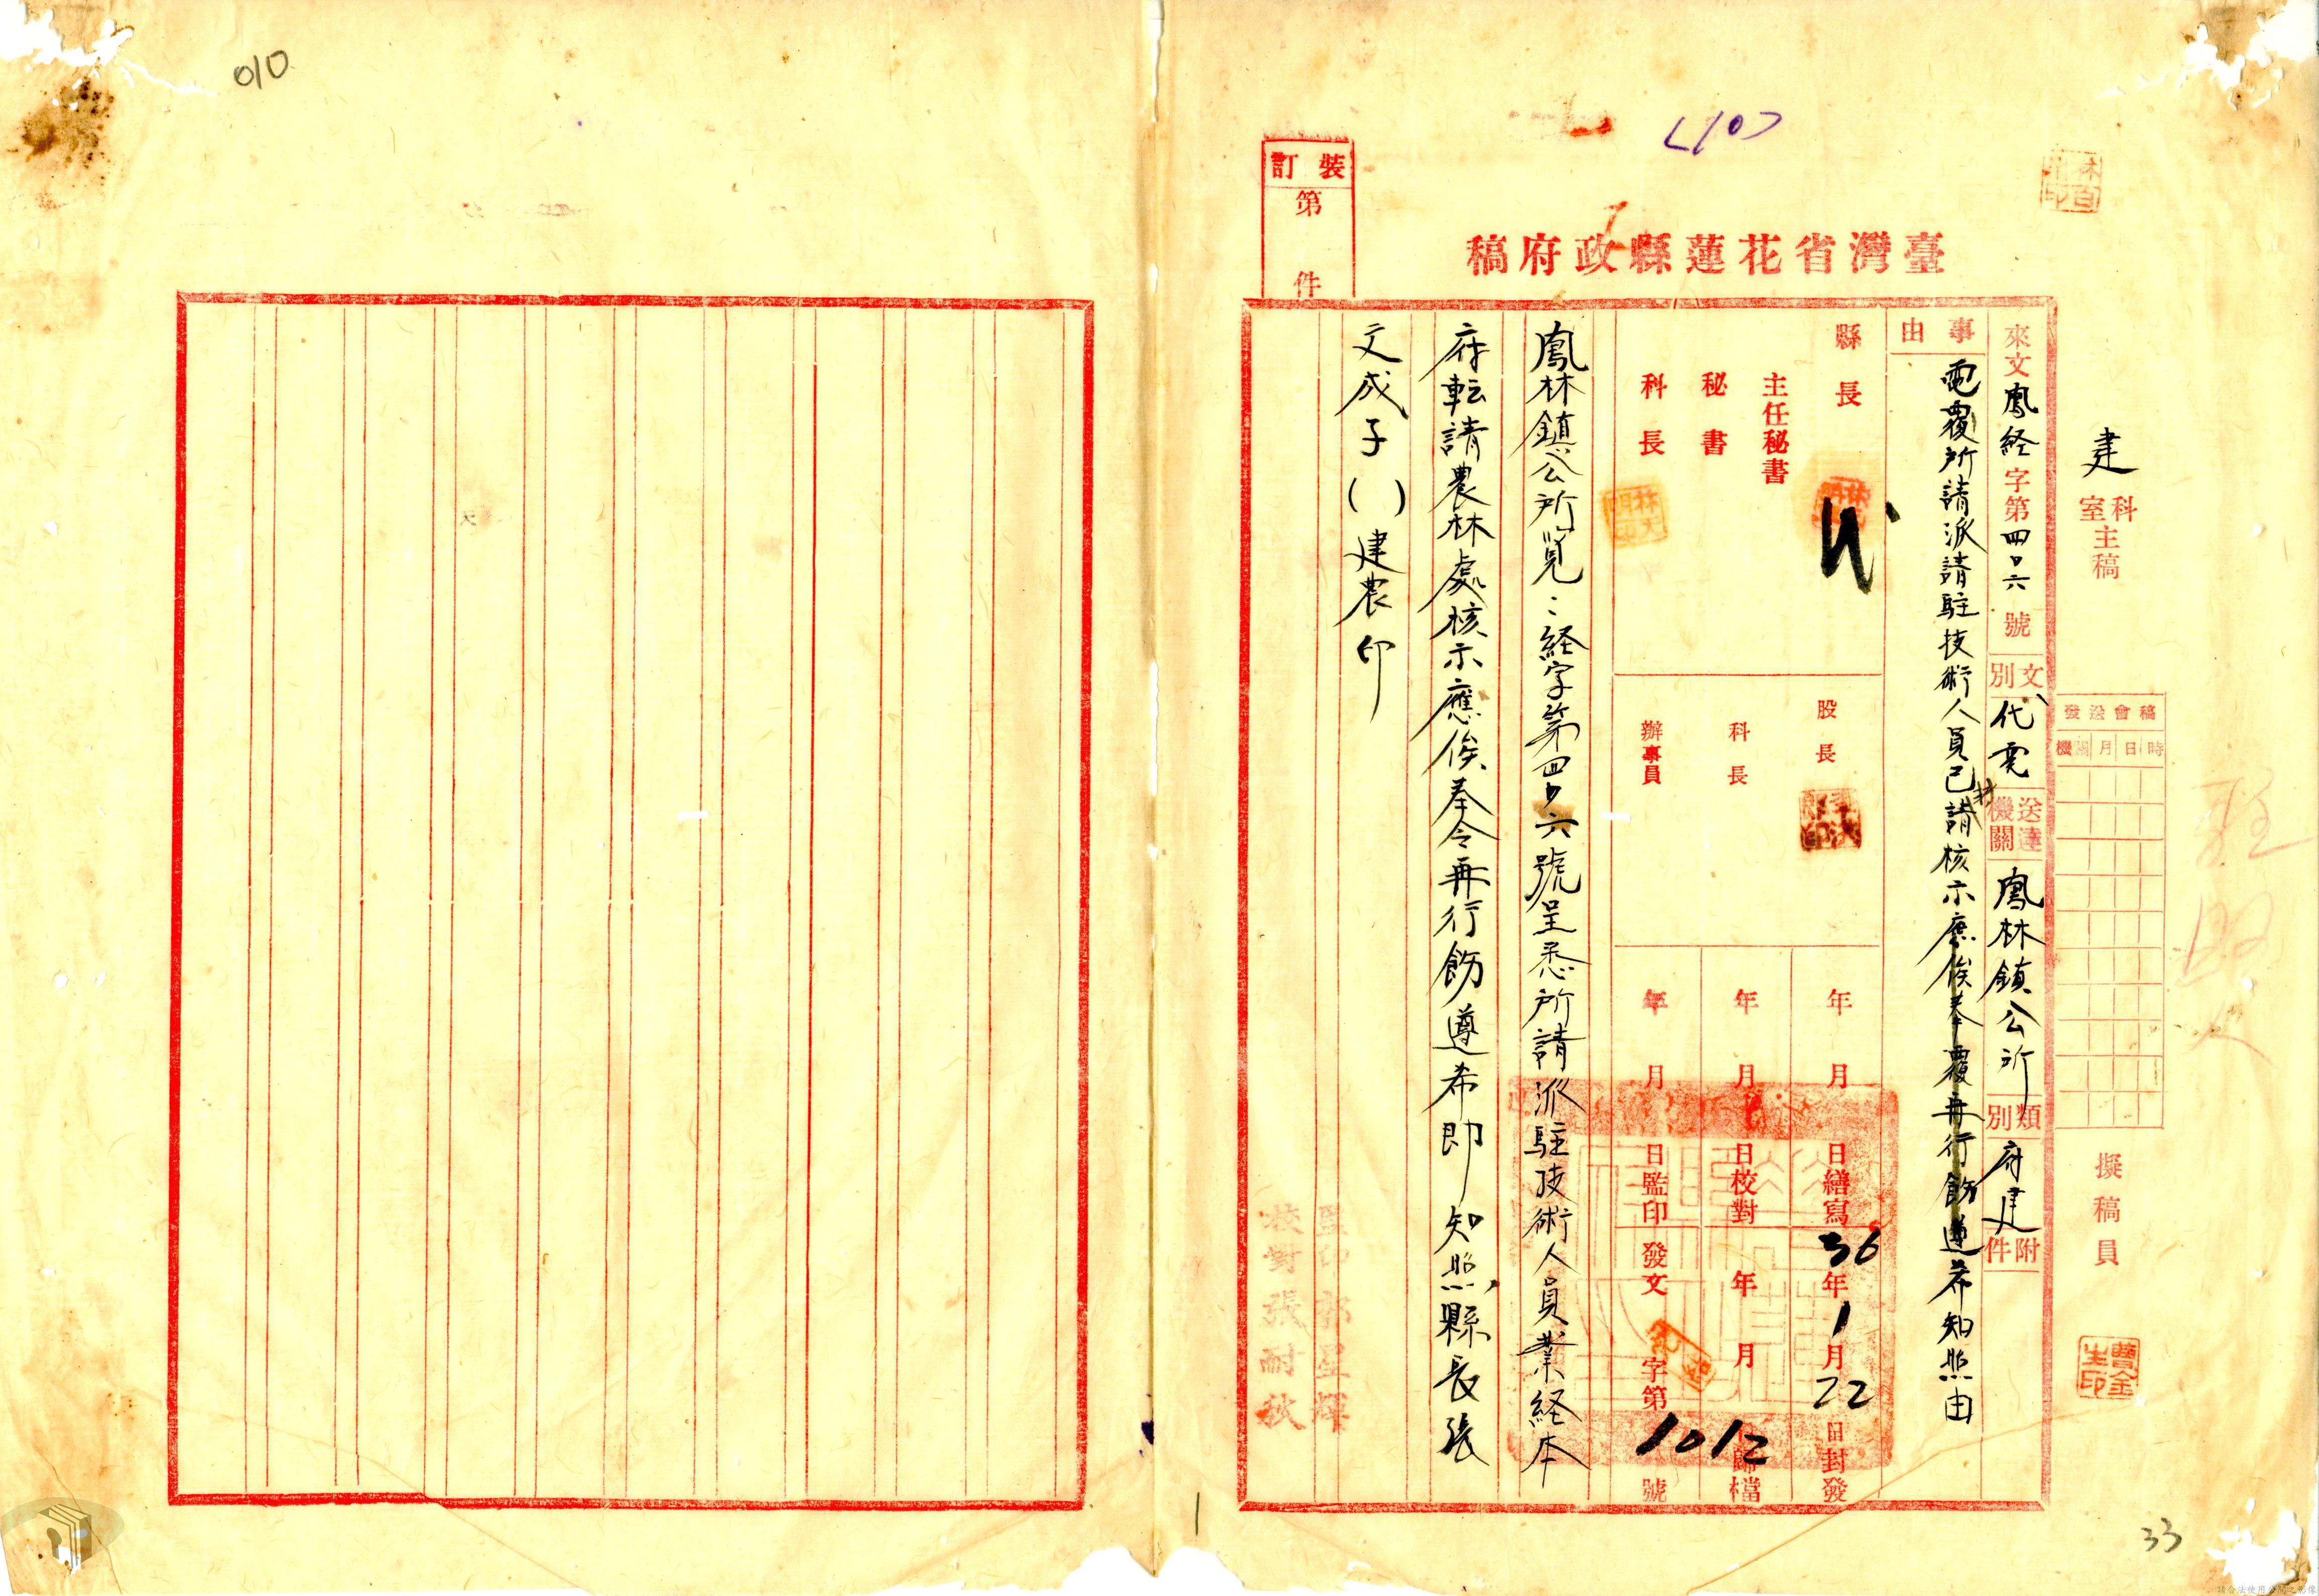 010
<10>
裝訂
第 件
臺灣省花蓮縣政府稿
建 科室主稿
擬稿員
曹金生印
稿會送發
時日月機關
來文 鳳経 字第 四0六 號
文別 代電
送達機關 鳳林鎮公所
類別 府建
附件
事由
電覆所請派請駐技術人員已請核示應俟奉覆再行飭遵希知照由
縣長
主任秘書
秘書
科長
股長
科長
辦事員
年 月 日繕寫
年 月 日校對
年 月 日監印
36年1月22日封發
年 月 歸檔
發文 字第 1012 號
鳳林鎮公所覽:経字第四0六號呈悉所請派駐技術人員業経本
府転請農林處核示應俟奉令再行飭遵希即知照縣長張
文成子( )建農印
監印 星輝
校對張耐秋
33